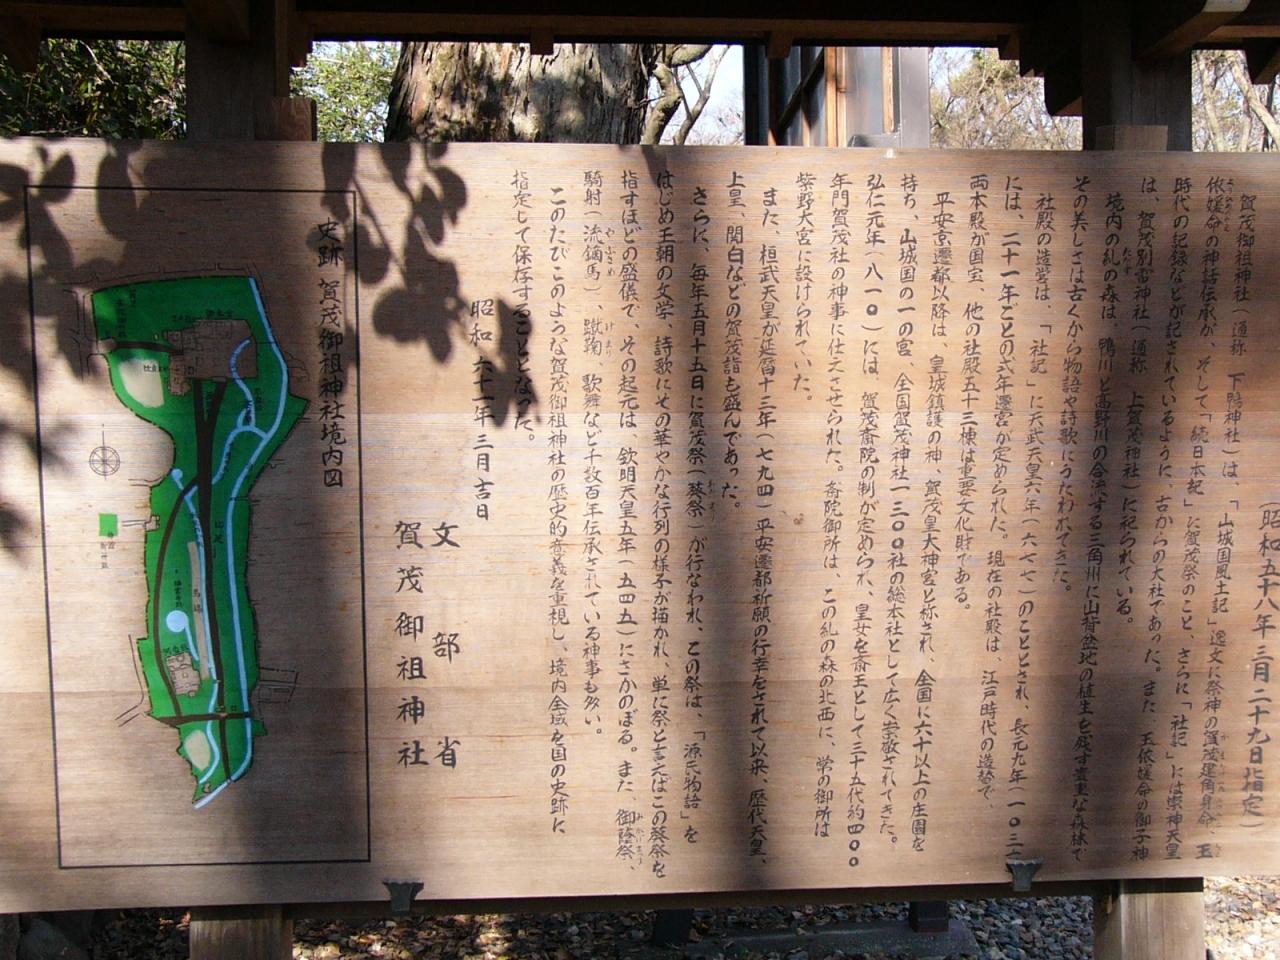 昭和五十八年三月二十九日指定）
賀茂御祖神社（通称 下鴨神社）は、「山城国風土記」逸文に祭神の賀茂建角身命、玉
依媛命の神話伝承が、そして「続日本紀」に賀茂祭のこと、さらに「社記」には崇神天皇
時代の記録などが記されているように、古からの大社であった。また、玉依媛命の御子神
は、賀茂別雷神社（通称 上賀茂神社）に祀られている。
境内の糺の森は、鴨川と高野川の合流する三角州に山背盆地の植生を残す貴重な森林で
その美しさは古くから物語や詩歌にうたわれてきた。
社殿の造営は、「社記」に天武天皇六年（六七七）のこととされ、長元九年（一〇三
には、二十一年ごとの式年遷宮が定められた。現在の社殿は、江戸時代の造替で
両本殿が国宝、他の社殿五十三棟は重要文化財である。
平安京遷都以降は、皇城鎮護の神、賀茂皇大神宮と称され、全国に六十以上の庄園を
持ち、山城国の一の宮、全国賀茂神社一三〇〇社の総本社として広く崇敬されてきた。
弘仁元年（八一〇）には、賀茂斎院の制が定められ、皇女を斎王として三十五代約四〇〇
年間賀茂社の神事に仕えさせられた。斎院御所は、この糺の森の北西に、常の御所は
紫野大宮に設けられていた。
また、桓武天皇が延暦十三年（七九四）平安遷都祈願の行幸をされて以来、歴代天皇、
上皇、関白などの賀茂詣も盛んであった。
さらに、毎年五月十五日に賀茂祭（葵祭）が行なわれ、この祭は、「源氏物語」を
はじめ王朝の文学、詩歌にその華やかな行列の様子が描かれ、単に祭と言えばこの葵祭を
指すほどの盛儀で、その起元は、欽明天皇五年（五四五）にさかのぼる。また、御蔭祭、
騎射（流鏑馬）、蹴鞠、歌舞など千数百年伝承されている神事も多い。
このたびこのような賀茂御祖神社の歴史的意義を重視し、境内全域を国の史跡に
指定して保存することとなった。
昭和六十一年三月吉日
文部省
賀茂御祖神社
史跡 賀茂御祖神社境内図